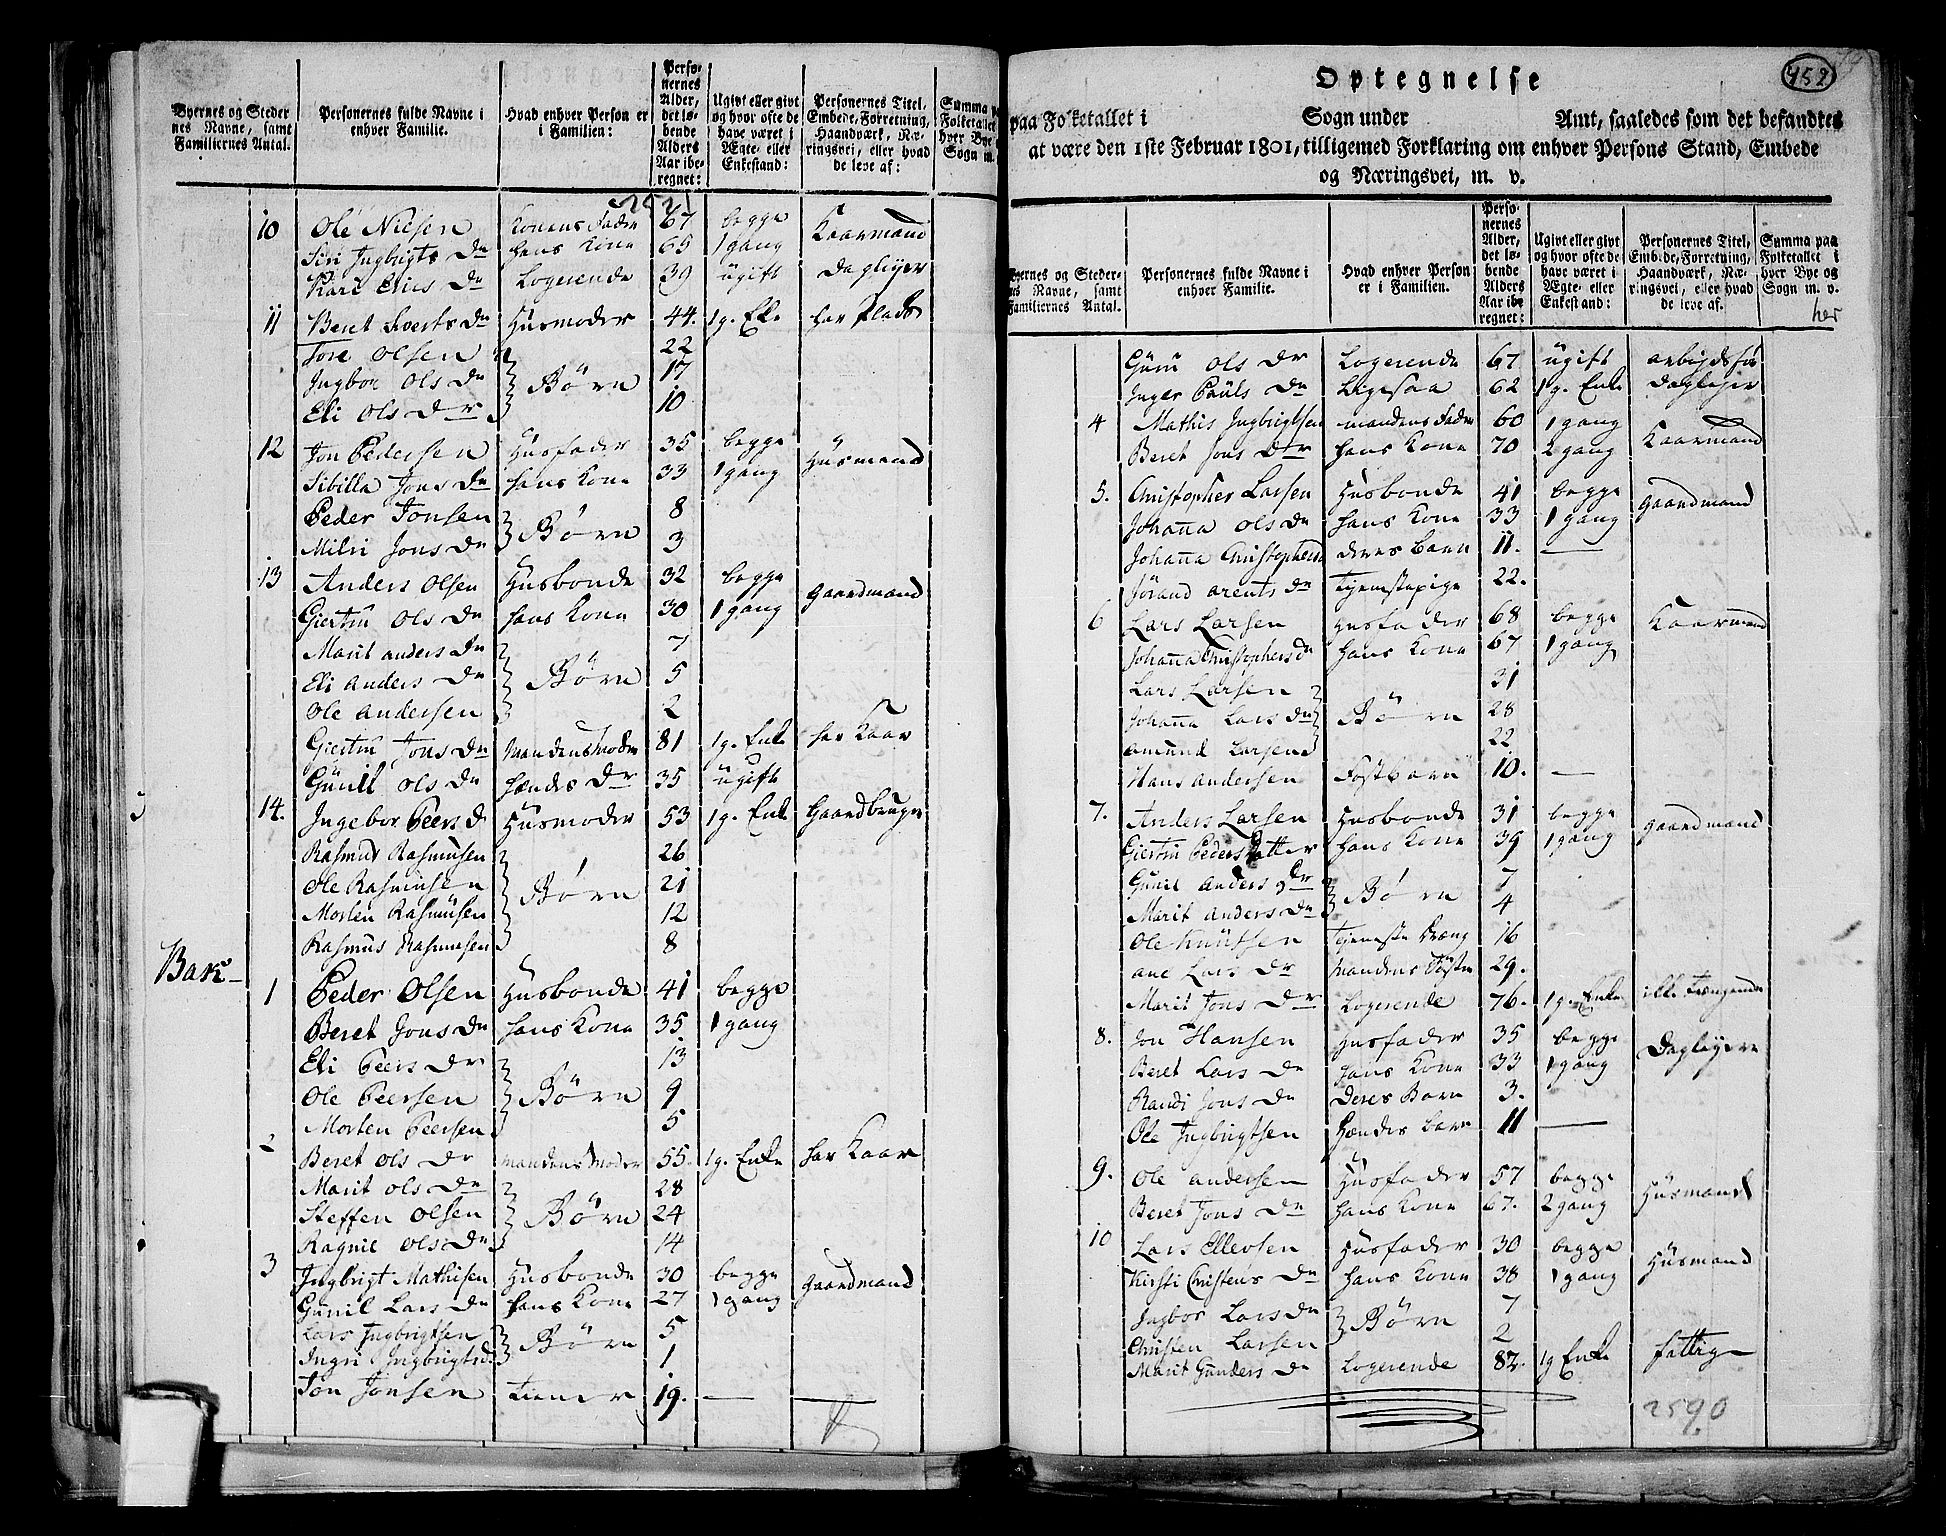 Byernes og Stedernes Navne, samt Familiernes Antal.
Personernes fulde Navne i enhver Familie.
Hvad enhver Person er i Familien:
Personernes Alder, det løbende Alders Aar iberegnet:
Ugivt eller givt og hvor ofte de have været i Ægte- eller Enkestand:
Personernes Titel, Embede, Forretning, Haandværk, Næringsvei, eller hvad de leve af:
Summa Folketallet hver Bye Sogn m.
2521
10 Ole Nielsen Konens Fader 67 begge Kaarmand
Siri Ingbrigts Dr hans Kone 65 1 gang
Kari Elies Dr Logerende 39 ugift Dagleyer
11 Beret Sivertsdr Husmoder 44. 1 g. Eke har Plads
Tore Olsen 22
Ingbor Ols Dr Børn 17
Eli Ols Dr 10
12 Jon Pedersen Husfader 35 begge Husmand
Sibilla Jons Dr hans Kone 33 1 gang
Peder Jonsen 8
Børn
Milri Jons Dr 3
13 Anders Olsen Husbonde 32 begge Gaardmand
Giertru Ols Dr hans Kone 30 1 gang
Marit Anders Dr 7
Eli Anders Dr Børn 5
Ole Andersen 2
Giertru Jons Dr Mandens Moder 81 1 g. Enke har Kaar
Gunil Ols Dr hendes Dr 35 ugift
14. Ingebor Peers D Husmoder 53 1 g. Enke Gaardbruger
Rasmus Rasmusen 26
Ole Rasmusen Børn 21
Morten Rasmusen 12
Rasmus Rasmusen 8
Bak
1 Peder Olsen Husbonde 41 begge
Beret Jons Dr hans Kone 35 1 gang
Eli Peers Dr 13
Ole Peersen Børn 9
Morten Peersen 5
2 Beret Ols Dr Mandens Moder 55. 1 g. Enke har Kaar
Marit Ols Dr 28
Steffen Olsen Børn 24
Ragnil Ols Dr 14
3 Ingbrigt Mathisen Husbonde 30 begge Gaardmand
Gunil Lars Dr hans Kone 27 1 gang
Lars Ingbrigtsen Børn 5
Ingri Ingbrigtsd. 1
Jon Jonsen Tiener 19. —
459
Optegnelse
paa Folketallet i Sogn under Amt, saaledes som det befandtes
at være den 1ste Februar 1801, tilligemed Forklaring om enhver Persons Stand, Embede
og Næringsvei, m. v.
Byernes og Stedernes Navne, samt Familiernes Antal.
Personernes fulde Navne i enhver Familie.
Hvad enhver Person er i Familien.
Personernes Alder, det løbende Alders Aar iberegnet:
Ugivt eller givt og hvor ofte de have været i Ægte- eller Enkestand:
Personernes Titel, Embede, Forretning, Haandværk, Næringsvei, eller hvad de leve af.
Summa paa Folketallet i hver Bye og Sogn m. v.
her
Guru Ols Dr Logerende 67 ugift
Inger Pauls Dr Ligesaa 62 1 g. Enke Dagleyer
4 Mathis Ingbrigtsen Mandens Fader 60 1 gang Kaarmand
Beret Jons Dr hans Kone 70 2 gang
5. Christopher Larsen Husbonde 41 begge Gaardmand
Johanna Ols Dr hans Kone 33 1 gang
Johanna Christophersd deres Barn 11. —
Jørand Arents Dr Tjenestepige 22.
6 Lars Larsen Husfader 68 begge Kaarmand
Johanna Christophers Dr hans Kone 67 1 gang
Lars Larsen 31
Johanna Lars Dr Børn 28
Amund Larsen 22
Hans Andersen Fostbarn 10. —
7. Anders Larsen Husbonde 31 begge Gaardmand
Giertru Peders Datter hans Kone 39 1 gang
Gunil Anders Dr Børn 7
Marit Anders Dr 4
Ole Knutsen Tjeneste Dræng 16
Ane Lars Dr Mandens Søster 29.
Marit Jons Dr Logerende 76. 1 g. Enke
8. Jon Hansen Husfader 35 begge Dagleyere
Beret Lars Dr hans Kone 33 1 gang
Randi Jons Dr Deres Barn 3.
Ole Ingbrigtsen Hendes barn 11 —
9. Ole Andersen Husfader 57 begge Husmand
Beret Jons Dr hans Kone 67. 2 gang
10 Lars Ellevsen Husfader 30 begge Husmand
Kirsti Christens Dr hans Kone 38 1 gang
Ingbor Lars Dr 7
Børn
Christen Larsen 2
Marit Gunders Dr Logerende 82. 1 g Enke fattig
2590